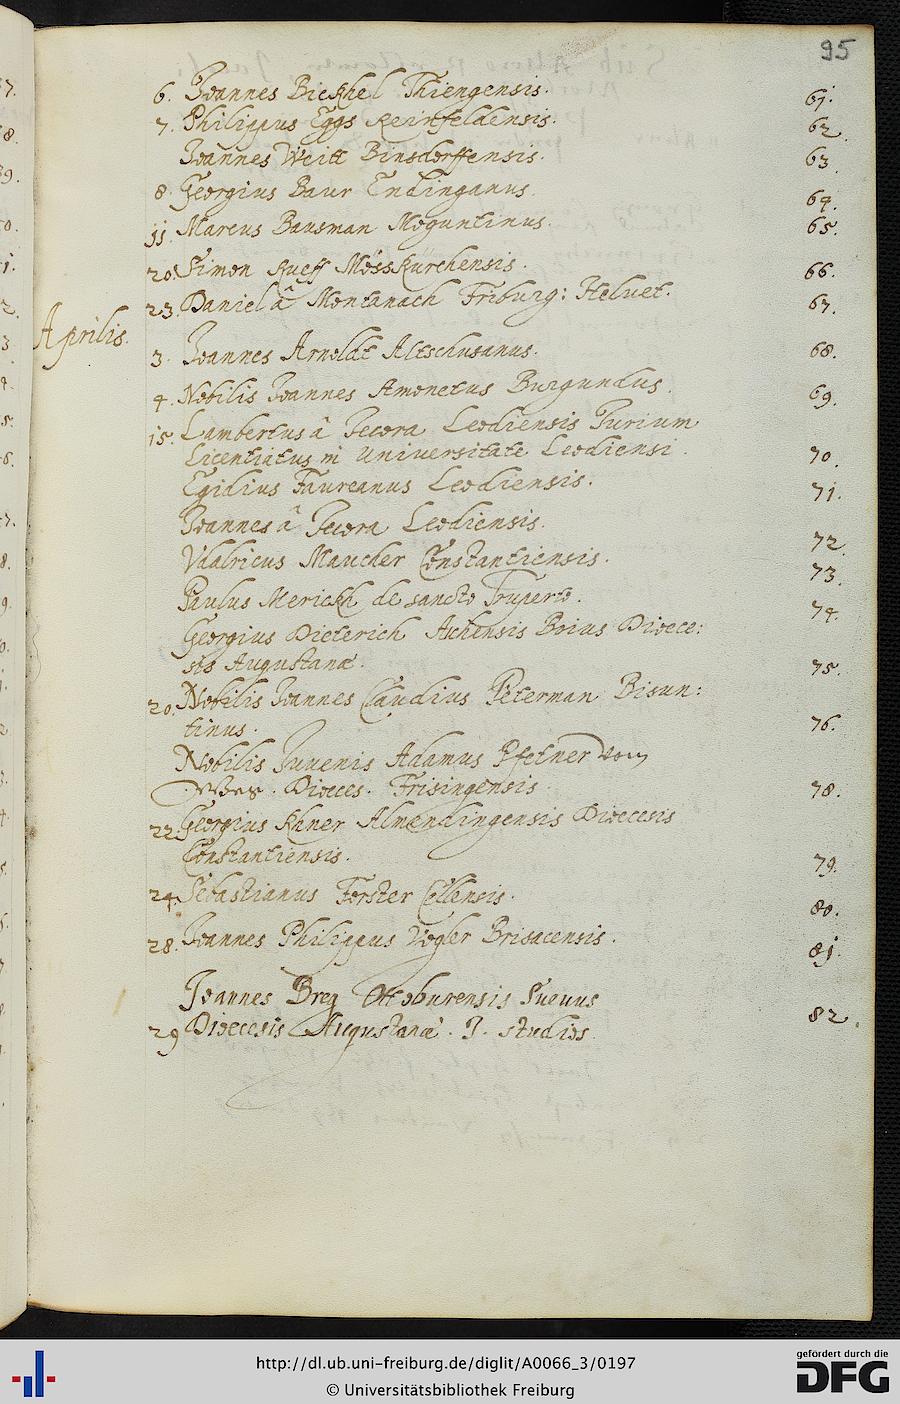 95
6. Joannes Bickhel Thiengensis. 61.
7. Philippus Eggs Reinfeldensis. 62.
Joannes Weitt Binsdorffensis. 63.
8. Georgius Baur Endinganus. 64.
11. Marcus Bausman Moguntinus. 65.
20. Simon Rueff Mösskurchensis. 66.
23. Daniel â Montanach Friburg: Helvet. 67.
Aprilis.
3. Joannes Arnoldt Altschusanus. 68.
4. Nobilis Joannes Amonetus Burgundus. 69.
15. Lambertus â Pecora Leodiensis Jurium
Licentiatus in Universitate Leodiensi. 70.
Egidius Taureanus Leodiensis. 71.
Joannes â Pecora Leodiensis. 72.
Udalricus Maucher Constantiensis. 73.
Paulus Merickh de sancto Truperto. 74.
Georgius Dieterich Aichensis Dioece:
sis Augustanæ. 75.
20. Nobilis Joannes Claudius Peterman Bisun:
tinus. 76.
Nobilis Juvenis Adamus Pfetner von
Dioeces. Frisingensis. 78.
22. Georgius Khner Almendingensis Dioecesis
Constantiensis. 79.
24. Sebastianus Forster Cellensis. 80.
28. Joannes Philippus Vogler Brisacensis. 81.
Joannes Breg Ottoburensis Suevus
29 Dioecesis Augustanæ. J. studios 82.
http://dl.ub.uni-freiburg.de/diglit/A0066_3/0197
© Universitätsbibliothek Freiburg
gefördert durch die
DFG